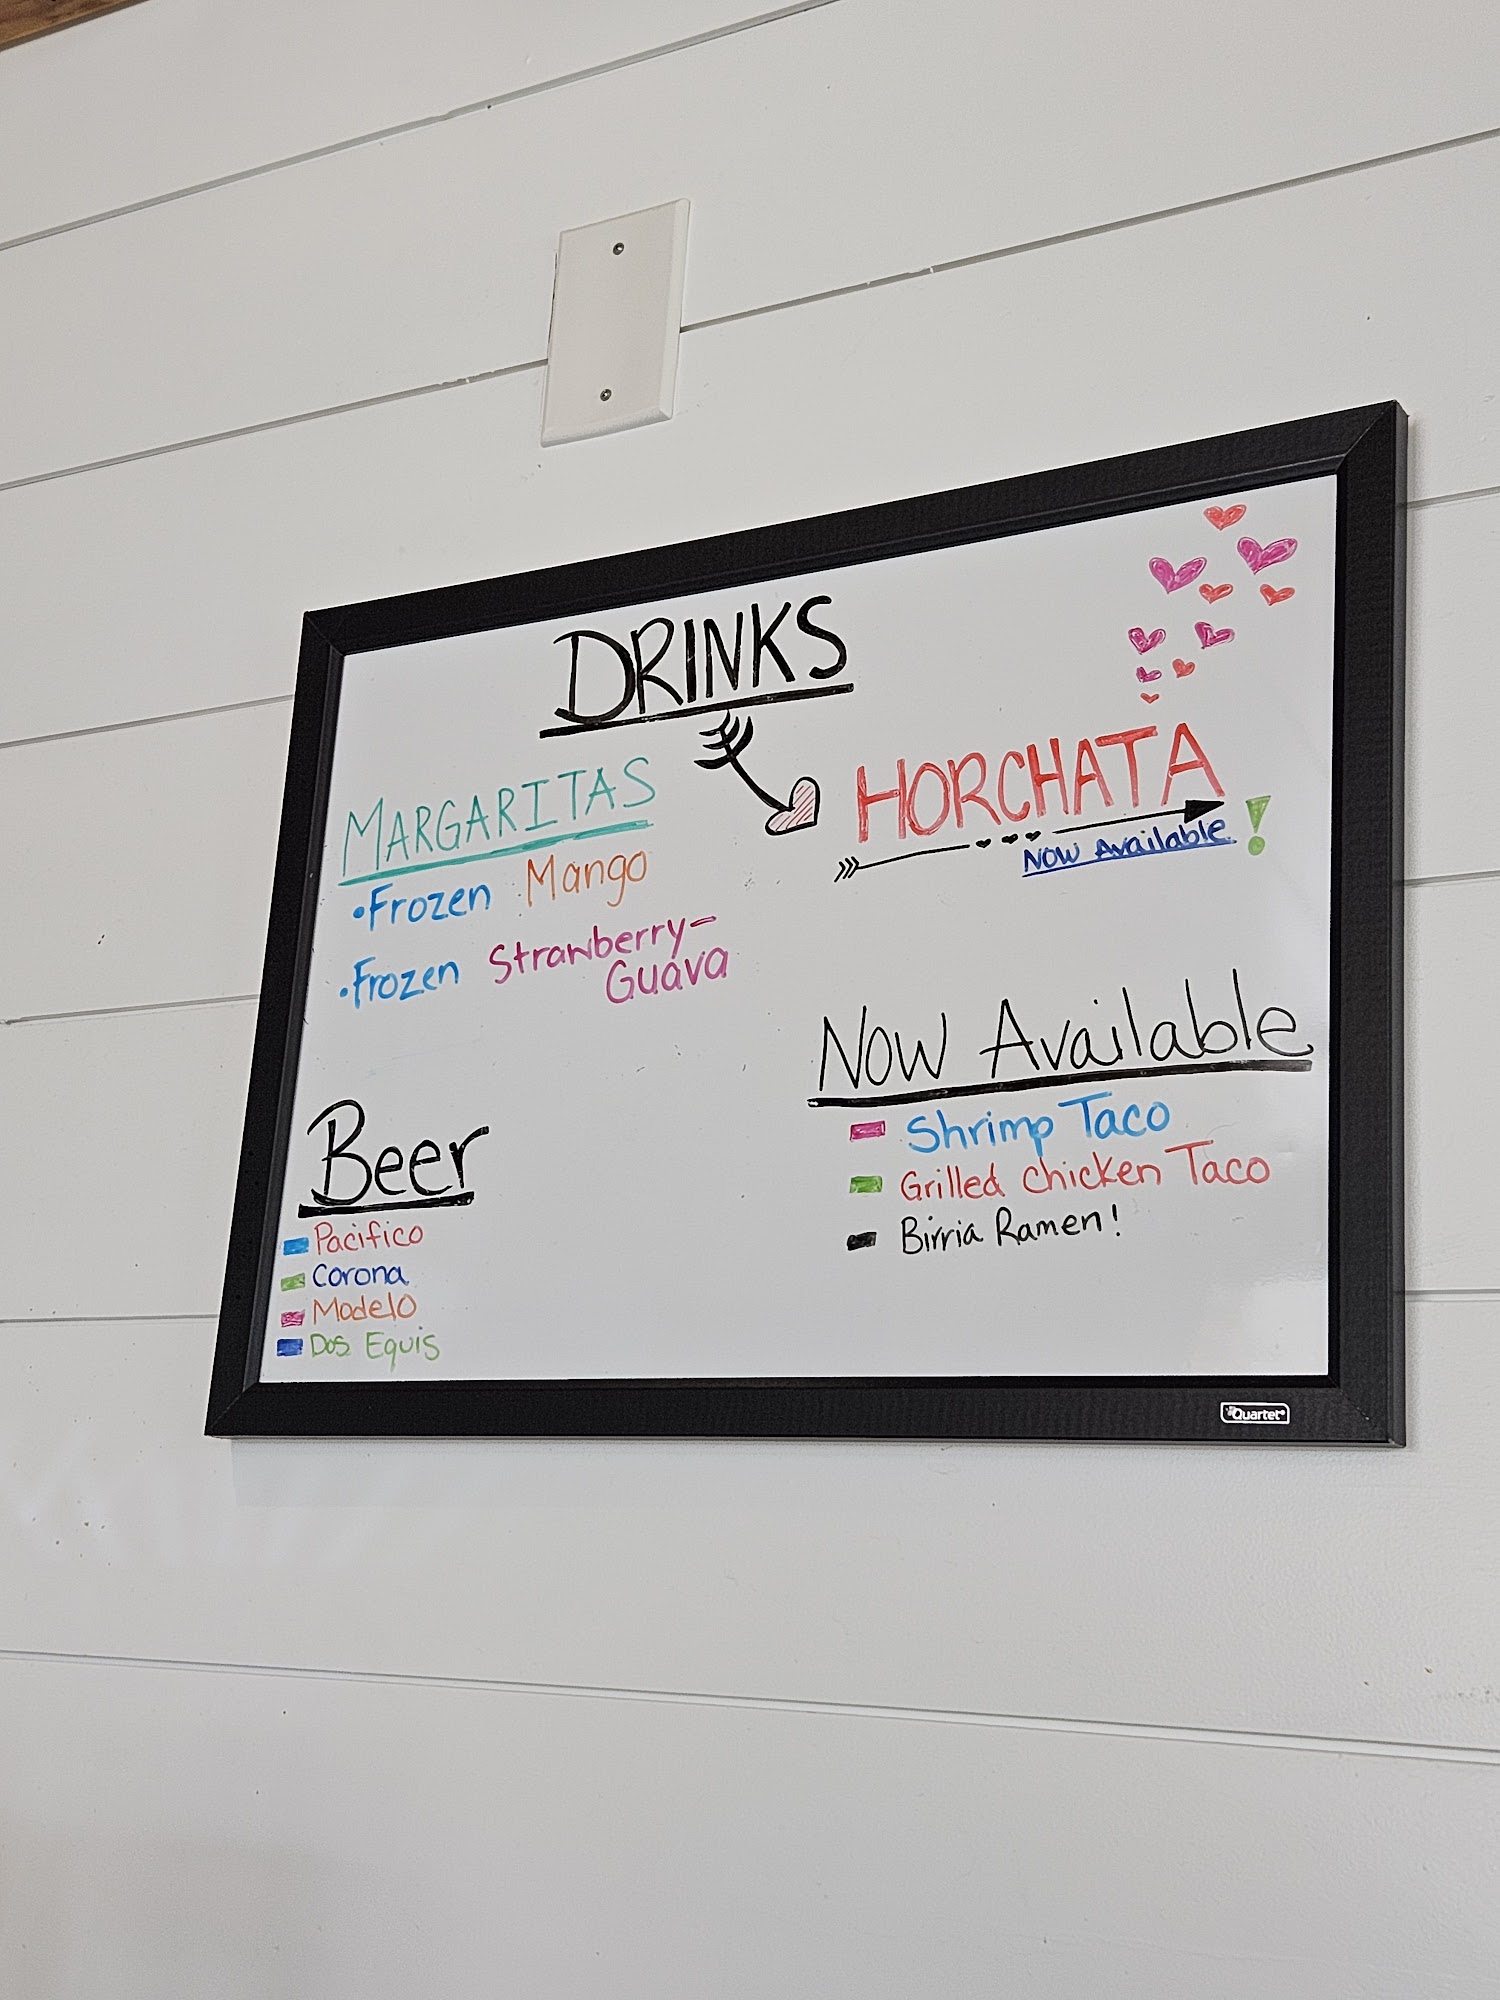 DRINKS
MARGARITAS
•Frozen Mango
•Frozen Strawberry-
Guava
HORCHATA
Now Available !
Beer
Pacifico
Corona
Modelo
Dos Equis
Now Available
Shrimp Taco
Grilled chicken Taco
Birria Ramen!
Quartet®